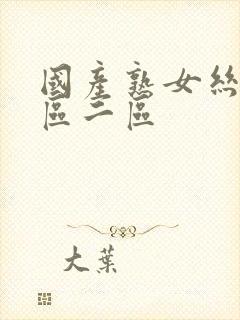 國產熟女絲
區二區
大葉